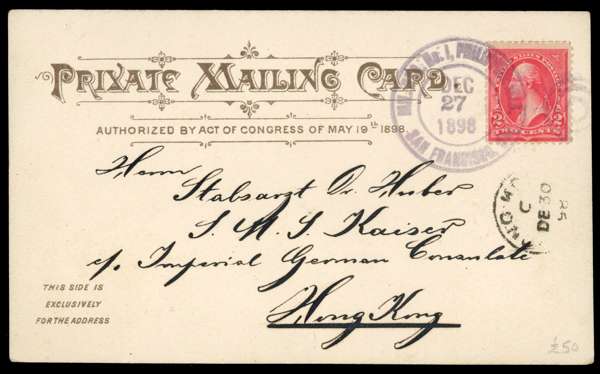 PRIVATE MAILING CARD
AUTHORIZED BY ACT OF CONGRESS OF MAY 19th 1898.
DEC
27
1898
SAN FRANCISCO
2 2
TWO CENTS
Herrn
Stabsarzt Dr. Huber
S. M. S. Kaiser
c/o Imperial German Consulate
Hong Kong
C
DE 30
THIS SIDE IS
EXCLUSIVELY
FOR THE ADDRESS
£50